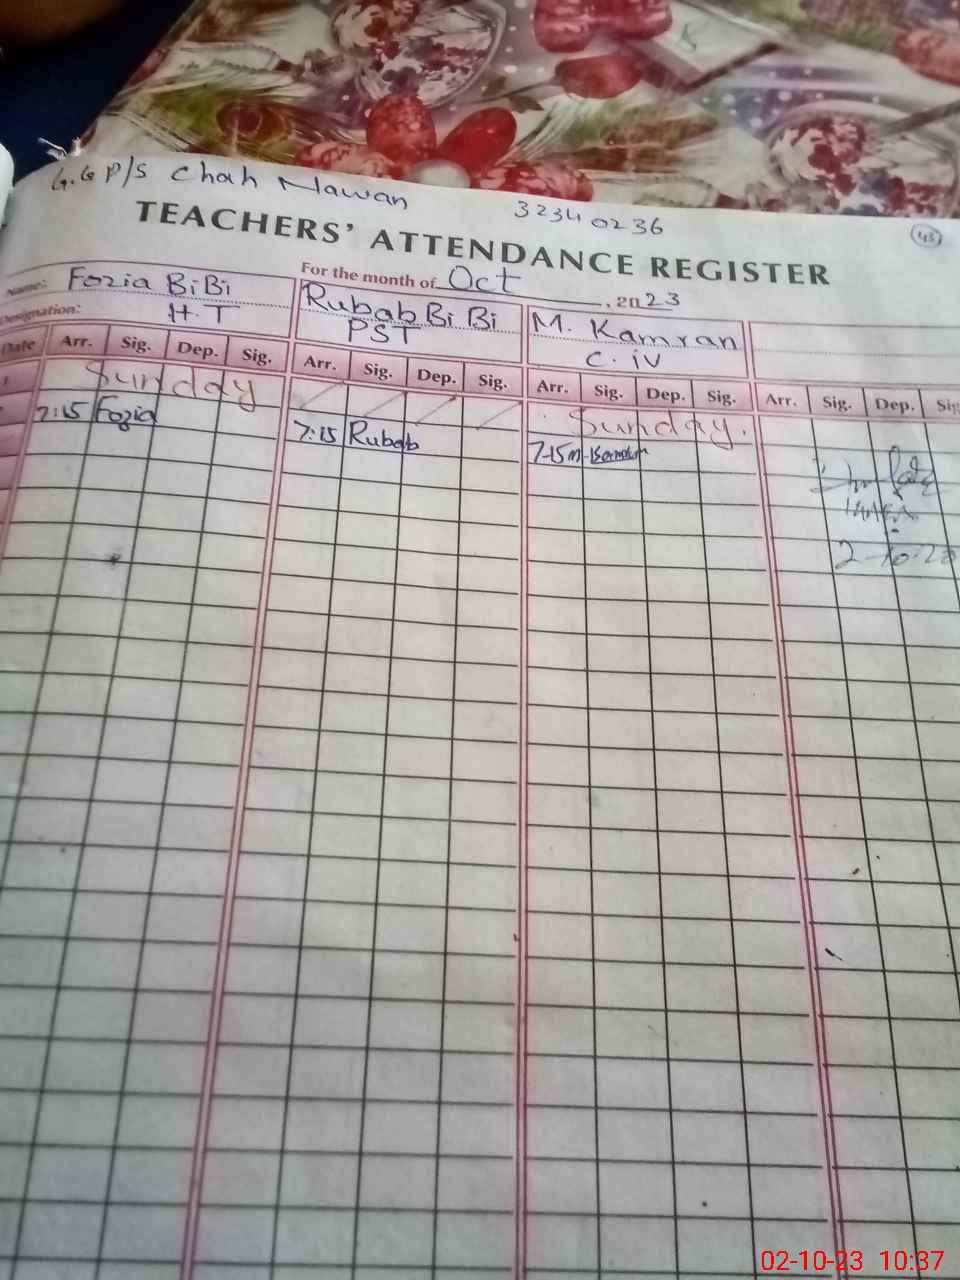 G.G P/S Chah Nawan 32340236
45
TEACHERS' ATTENDANCE REGISTER
For the month of Oct, 2023
Name: Fozia BiBi Rubab Bi Bi M. Kamran
Designation: H.T PST C. iv
Date Arr. Sig. Dep. Sig. Arr. Sig. Dep. Sig. Arr. Sig. Dep. Sig. Arr. Sig. Dep. Sig
1 Sunday Sunday.
7:15 Fozia 7:15 Rubab 7-15 m. Kamran
02-10-23 10:37